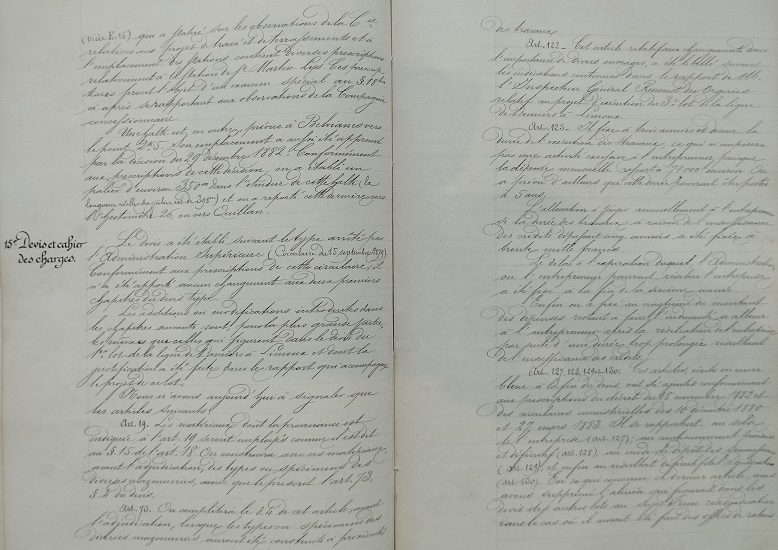 (Pièce E. 15) que a statué sur les observations de la Cie
relatives aux projets de tracé et de terrassements et à
l'emplacement des stations contient diverses prescriptions
relativement à la station de St Martin-Lys. Ces prescrip-
tions feront l'objet d'un examen spécial au § 18
ci après se rapportant aux observations de la Compagnie
concessionnaire.
Une halte est, en outre, prévue à Belvianes vers
le point 2K,5. Son emplacement a aussi été approuvé
par la décision du 29 décembre 1882. Conformément
aux prescriptions de cette décision, on a établi un
palier d'environ 350m dans l'étendue de cette halte (la
longueur réelle du palier est de ) et on a reporté cette dernière vers
26, ou vers Quillan.
15° Devis et cahier
des charges.
Le devis a été établi suivant le type arrêté par
l'Administration Supérieure (Circulaire du 15 septembre 1879)
Conformément aux prescriptions de cette circulaire, il
n'a été apporté aucun changement aux deux premiers
chapitres du devis type.
Les additions ou modifications introduites dans
les chapitres suivants sont, pour la plus grande partie,
les mêmes que celles qui figurent dans le devis du
1er lot de la ligne de à Limoux et dont la
justification a été faite dans le rapport qui accompagne
le projet de ce lot.
Nous n'avons aujourd'hui à signaler que
les articles suivants:
Art. 19. Les matériaux dont la provenance est
indiquée à l'art. 19 seront employés comme il est dit
au § 15 de l'art. 18. On construira avec ces matériaux,
avant l'adjudication, des types ou spécimens des
diverses maçonneries, ainsi que le prescrit l'art. 73,
§ 4 du devis.
Art. 73. On complètera le § 4 de cet article, avant
l'adjudication, lorsque les types ou spécimens des
diverses maçonneries auront été construits à proximité
des travaux.
Art. 122. Cet article relatif aux changements dans
l'importance de divers ouvrages, a été établi suivant
les indications contenues dans le rapport de M.
l'Inspecteur Général
relatif au projet d'exécution du 3e lot de la ligne
de à Limoux.
Art. 123. Il fixe à trois années et demie la
durée de l'exécution des travaux, ce qui n'imposera
pas une activité excessive à l'entrepreneur puisque
la dépense mensuelle ressort à 71.000 environ. On
a prévu d'ailleurs que cette durée pourrait être portée
à 5 ans.
L'allocation à payer annuellement à l'entrepreneur
si la durée des travaux, à raison de l'insuffisance
des crédits dépassait cinq années a été fixée à
trente mille francs.
Le délai à l'expiration duquel l'Administration
ou l'entrepreneur pourront résilier l'entreprise
a été fixé à la fin de la sixième année.
Enfin on a fixé au vingtième du montant
des dépenses restant à faire l'indemnité à allouer
à l'entrepreneur après la résiliation de l'entreprise
par suite d'une durée trop prolongée résultant
de l'insuffisance des crédits.
Art. 127, 128, 129 et 130. Ces articles écrits en encre
bleue à la fin du devis, ont été ajoutés conformément
aux prescriptions du décret du 18 novembre 1882 et
des circulaires ministérielles des 10 décembre 1880
et 27 mars 1883. Ils se rapportent au
de l'entreprise (art. 127), au cautionnement provisoire
et définitif (art. 128), au mode de dépôt des soumissions
(art. 129) et enfin au résultat définitif de l'adjudication
(art. 130). En ce qui concerne ce dernier article, nous
avons supprimé l'alinéa qui figurait dans les
devis des autres lots au sujet d'une réadjudication
dans le cas où il aurait été fait des offres de rabais